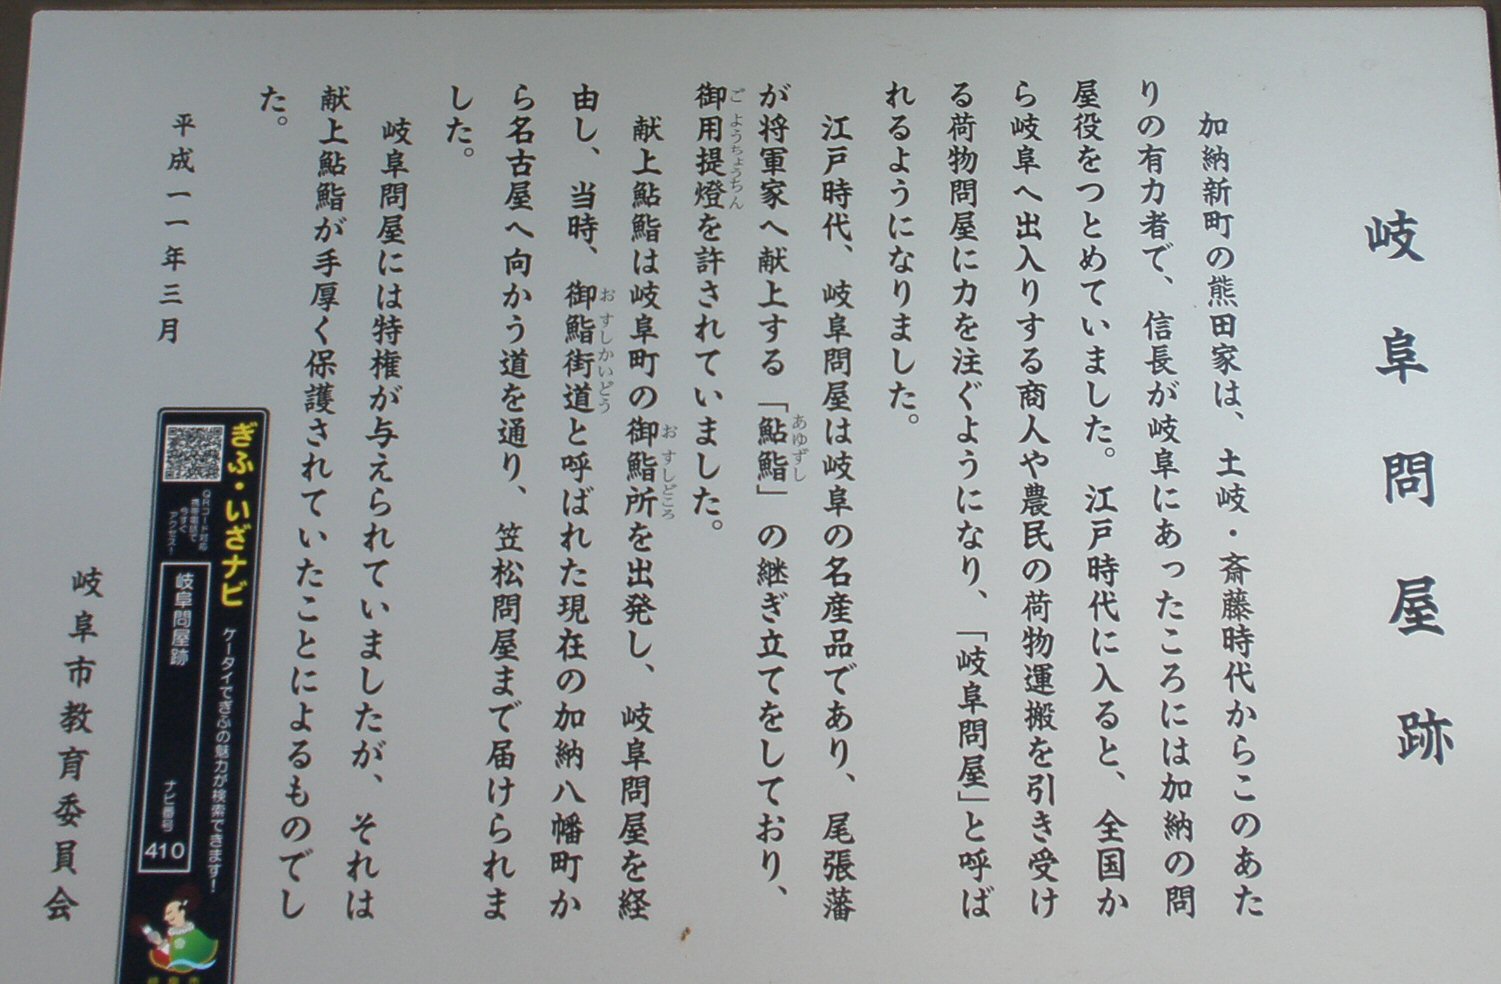 岐阜問屋跡
加納新町の熊田家は、土岐・斎藤時代からこのあた
りの有力者で、信長が岐阜にあったころには加納の問
屋役をつとめていました。江戸時代に入ると、全国か
ら岐阜へ出入りする商人や農民の荷物運搬を引き受け
る荷物問屋に力を注ぐようになり、「岐阜問屋」と呼ば
れるようになりました。
江戸時代、岐阜問屋は岐阜の名産品であり、尾張藩
が将軍家へ献上する「鮎鮨」の継ぎ立てをしており、
あゆずし
御用提燈を許されていました。
ごようちょうちん
献上鮎鮨は岐阜町の御鮨所を出発し、岐阜問屋を経
おすしどころ
由し、当時、御鮨街道と呼ばれた現在の加納八幡町か
おすしかいどう
ら名古屋へ向かう道を通り、笠松問屋まで届けられま
した。
岐阜問屋には特権が与えられていましたが、それは
献上鮎鮨が手厚く保護されていたことによるものでし
た。
平成一一年三月
岐阜市教育委員会
ぎふ・いざナビ
ケータイでぎふの魅力が検索できます!
QRコード対応
携帯電話で
今すぐ
アクセス!
岐阜問屋跡
ナビ番号
410